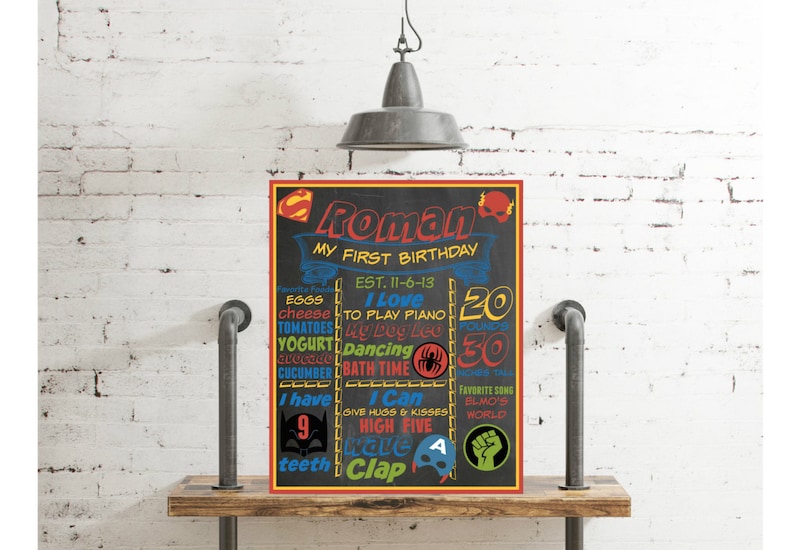 Roman
MY FIRST BIRTHDAY
EST. 11-6-13
Favorite Foods
EGGS
cheese
TOMATOES
YOGURT
avocado
CUCUMBER
I have
9
teeth
I Love
TO PLAY PIANO
My Dog Leo
Dancing
BATH TIME
I Can
GIVE HUGS & KISSES
HIGH FIVE
wave
Clap
A
20
POUNDS
30
INCHES TALL
FAVORITE SONG
ELMO'S
WORLD